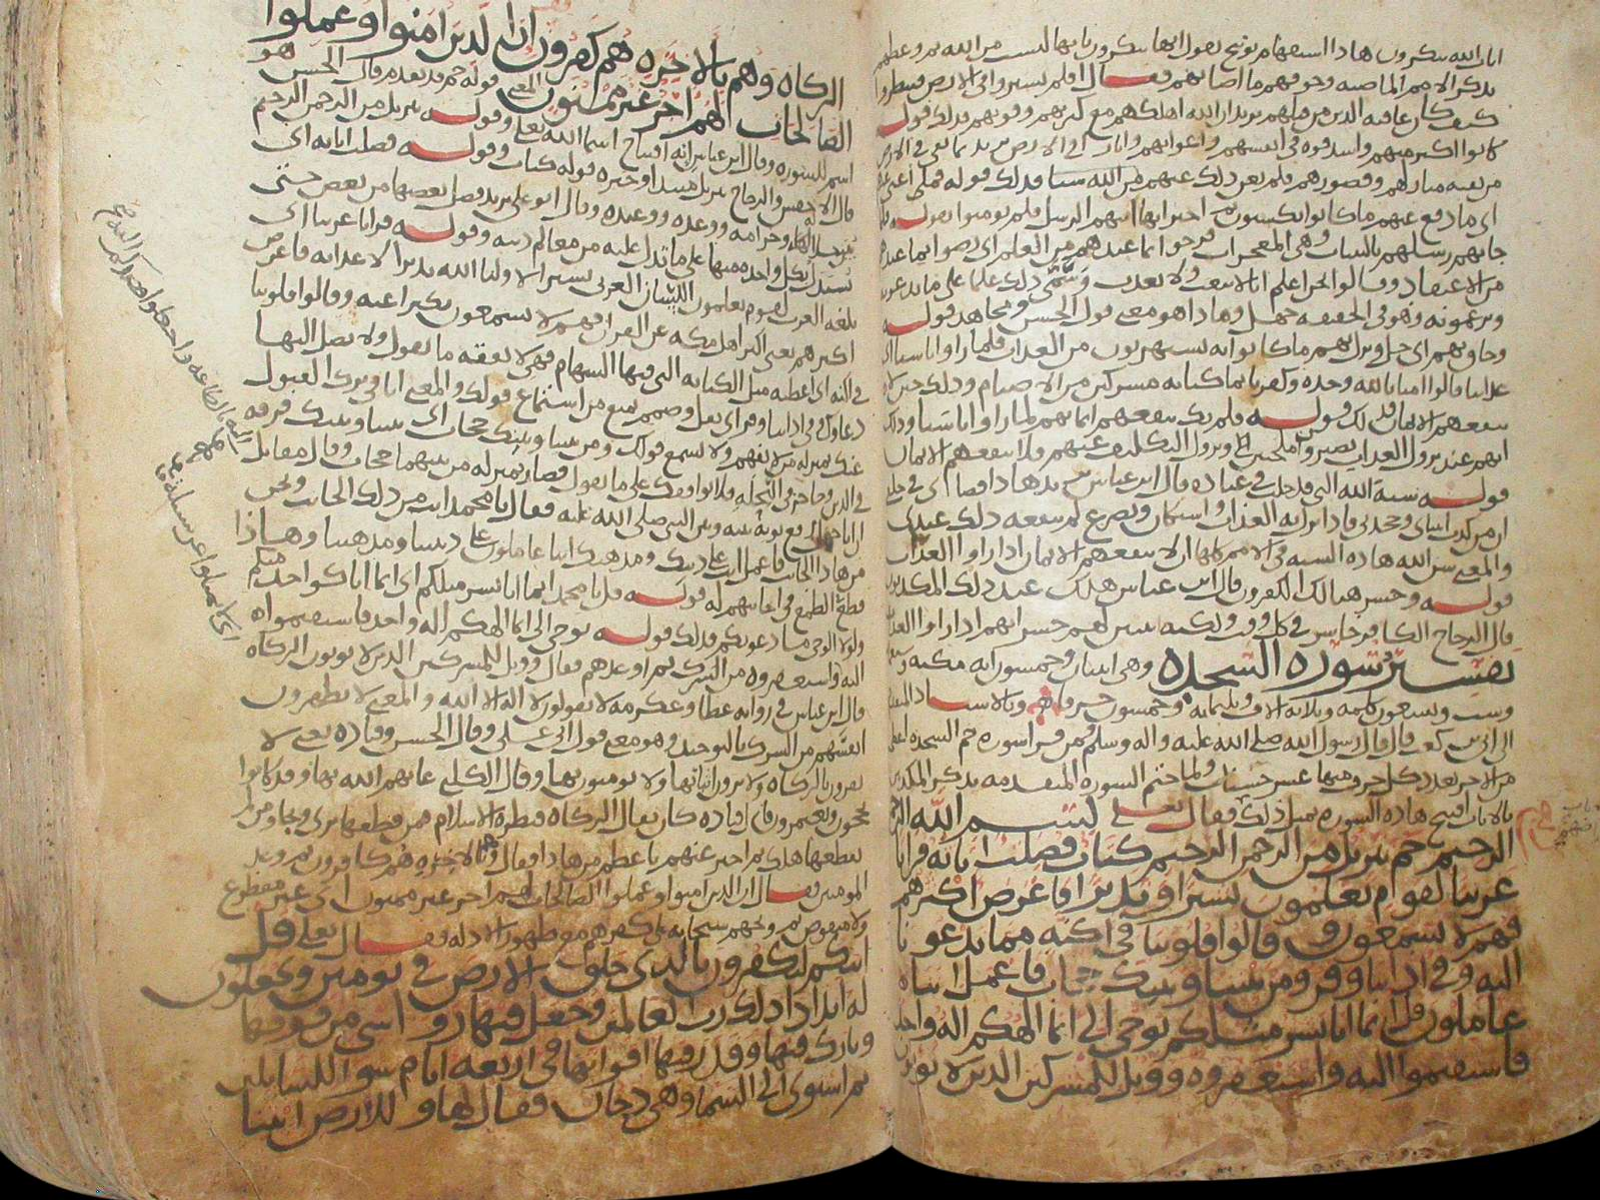 ايات الله تنكرون هاذا استفهام توبيخ يقول ايها تنكرون بانها ليست من الله ثم وعظهم
بذكر الامم الماضيه وخوفهم ما اصابهم فقال افلم يسيروا في الارض فينظروا
كيف كان عاقبة الذين من قبلهم يريد ان الله اهلكهم مع كثرتهم وقوتهم فذلك قوله
كانوا اكثر منهم واشد قوه في انفسهم واعوانهم واثارا في الارض يريد ما بقي في الارض
من بقية منازلهم وقصورهم فلم يغن ذلك عنهم من الله شيا فذلك قوله فما اغنى
اي ما دفع عنهم ما كانوا يكسبون ثم اخبر انها اتتهم الرسل فلم يومنوا بقوله فلما
جاتهم رسلهم بالبينات وهي المعجزات فرحوا بما عندهم من العلم اي رضوا بما عندهم
من الاعتقاد وقالوا نحن اعلم انا لا نبعث ولا نعذب وسمى ذلك علما على ما يدعون
ويزعمونه وهو في الحقيقه جهل وهاذا هو معنى قول الحسن ومجاهد قوله
وحاق بهم اي حل ونزل بهم ما كانوا به يستهزون من العذاب فلما راوا باسنا اي
عذابنا قالوا امنا بالله وحده وكفرنا بما كنا به مشركين من الاصنام وذلك حين لا
ينفعهم الايمان فذلك قوله فلم يك ينفعهم ايمانهم لما راوا باسنا وذلك
انهم عند نزول العذاب يصيروا ملجين ويزول التكليف عنهم فلا ينفعهم الايمان
قوله سنة الله التي قد خلت في عباده قال ابن عباس يريد هاذا قضاي في خلقي
ان من كذب انبياي وجحدني فاذا نزل به العذاب واستكان وتضرع لم ينفعه ذلك عندي
والمعنى سن الله هاذه السنه في الامم كلها ان لا ينفعهم الايمان اذا راوا العذاب
قوله وخسر هنالك الكفرون قال ابن عباس هلك عند ذلك المكذبون
قال الزجاج الكافر خاسر في كل وقت ولكنه تبين لهم خسرانهم اذا راوا العذاب
تفسير سورة السجده وهي اثنان وخمسون ايه مكيه
وست وتسعون كلمه وثلاثة الاف وثلثمايه وخمسون حرفا وبالاسناد المتقدم
الى ابي بن كعب قال قال رسول الله صلى الله عليه واله وسلم من قرا سورة حم السجده اعطي
من الاجر بعدد كل حرف منها عشر حسنات ولما ختم السوره المتقدمه بذكر المكذبين
بالايات افتتح هاذه السوره بمثل ذلك فقال تعلى بسم الله الرحمن
الرحيم حم تنزيل من الرحمن الرحيم كتاب فصلت اياته قرانا
عربيا لقوم يعلمون بشيرا ونذيرا فاعرض اكثرهم
فهم لا يسمعون وقالوا قلوبنا في اكنه مما تدعونا
اليه وفي اذاننا وقر ومن بيننا وبينك حجاب فاعمل اننا
عاملون قل انما انا بشر مثلكم يوحى الي انما الهكم اله واحد
فاستقيموا اليه واستغفروه وويل للمشركين الذين لا يوتون
الزكاه وهم بالاخره هم كفرون ان الذين امنوا وعملوا
الصالحات لهم اجر غير ممنون المعنى قوله حم قد تقدم وقال الحسن هو
اسم للسوره وقال ابن عباس انه افتتاح اسما الله تعلى وقوله تنزيل من الرحمن الرحيم
قال الاخفش والزجاج تنزيل مبتدا وخبره قوله كتاب وقوله فصلت اياته اي
بينت حلاله وحرامه ووعده ووعيده وقال ابو علي يريد فصل بعضها من بعض حتى
يستدل بكل واحده منها على ما تدل عليه من معالم دينه وقوله قرانا عربيا اي
بلغة العرب لقوم يعلمون اللسان العربي بشيرا لاوليا الله نذيرا لاعدايه فاعرض
اكثرهم يعني اكثر اهل مكه عن القران فهم لا يسمعون تكبرا عنه وقالوا قلوبنا
في اكنه اي اغطيه مثل الكنانه التي فيها السهام فهي لا تفقه ما تقول ولا يصل اليها
دعاوك وفي اذاننا وقر اي ثقل وصمم يمنع من استماع قولك والمعنى انا في ترك القبول
عنك بمنزلة من لا يفهم ولا يسمع قولك ومن بيننا وبينك حجاب اي بيننا وبينك فرقه
في الدين وحاجز في النحله فلا نوافقك على ما تقول فصار بمنزله من بينهما حجاب وقال مقاتل
ان ابا جهل رفع ثوبه بينه وبين النبي صلى الله عليه فقال يا محمد انت من ذلك الجانب ونحن
من هاذا الجانب فاعمل انت على دينك ومذهبك اننا عاملون على ديننا ومذهبنا وهاذا
قطع الطمع في اجابتهم له قوله قل يا محمد انما انا بشر مثلكم اي انما انا كواحد منكم
ولولا الوحي ما دعوتكم فذلك قوله يوحى الي انما الهكم اله واحد فاستقيموا
اليه واستغفروه من الشرك ثم اوعدهم فقال وويل للمشركين الذين لا يوتون الزكاه
قال ابن عباس في رواية عطا وعكرمه لا يقولون لا اله الا الله والمعنى لا يطهرون
انفسهم من الشرك بالتوحيد وهو معنى قول ابي علي وقال الحسن وقتاده يعني لا
يقرون بالزكاه ولا يرون ايتاها ولا يومنون بها وقال الكلبي عابهم الله بها وقد كانوا
يحجون ويعتمرون قال قتاده كان يقال الزكاه قنطرة الاسلام فمن قطعها برى ونجا ومن لم
يقطعها هلك ثم اخبر عنهم باعظم من هاذا فقال وهم بالاخره هم كافرون ثم وعد
المومنين فقال ان الذين امنوا وعملوا الصالحات لهم اجر غير ممنون اي غير مقطوع
ولا منقوص ثم وبخهم سبحانه على كفرهم مع ظهور الادله فقال تعلى قل
اينكم لتكفرون بالذي خلق الارض في يومين وتجعلون
له اندادا ذلك رب العالمين وجعل فيها رواسي من فوقها
وبارك فيها وقدر فيها اقواتها في اربعة ايام سوا للسايلين
ثم استوى الى السما وهي دخان فقال لها وللارض ايتيا